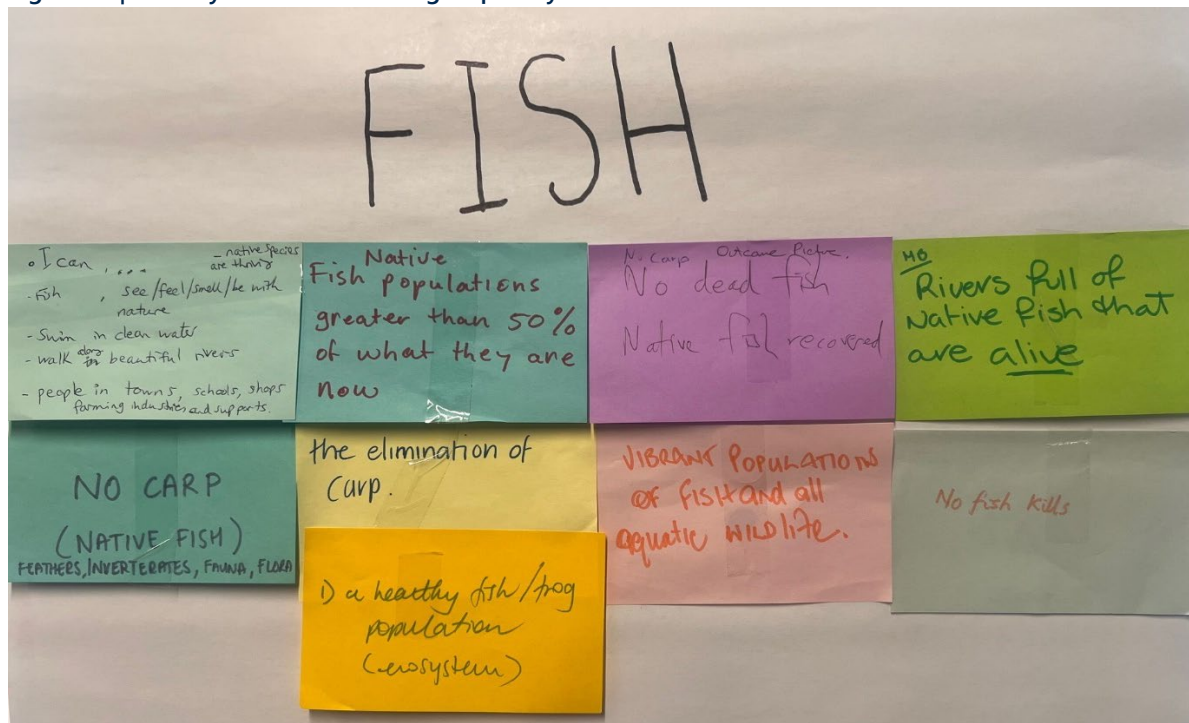 FISH
• I can ,... - native species
are thriving
- Fish , see/feel/smell/be with
nature
- Swim in clean water
- walk along beautiful rivers
- people in towns, schools, shops
farming industries and supports.
Native
Fish populations
greater than 50%
of what they are
now
N. Carp Outcome Picture.
No dead fish
Native fish recovered
MB
Rivers full of
Native fish that
are alive
NO CARP
(NATIVE FISH)
FEATHERS, INVERTERATES, FAUNA, FLORA
the elimination of
Carp.
VIBRANT POPULATIONS
OF FISH AND all
aquatic WILDLIFE.
No fish kills
1) a healthy fish/frog
population
(ecosystem)